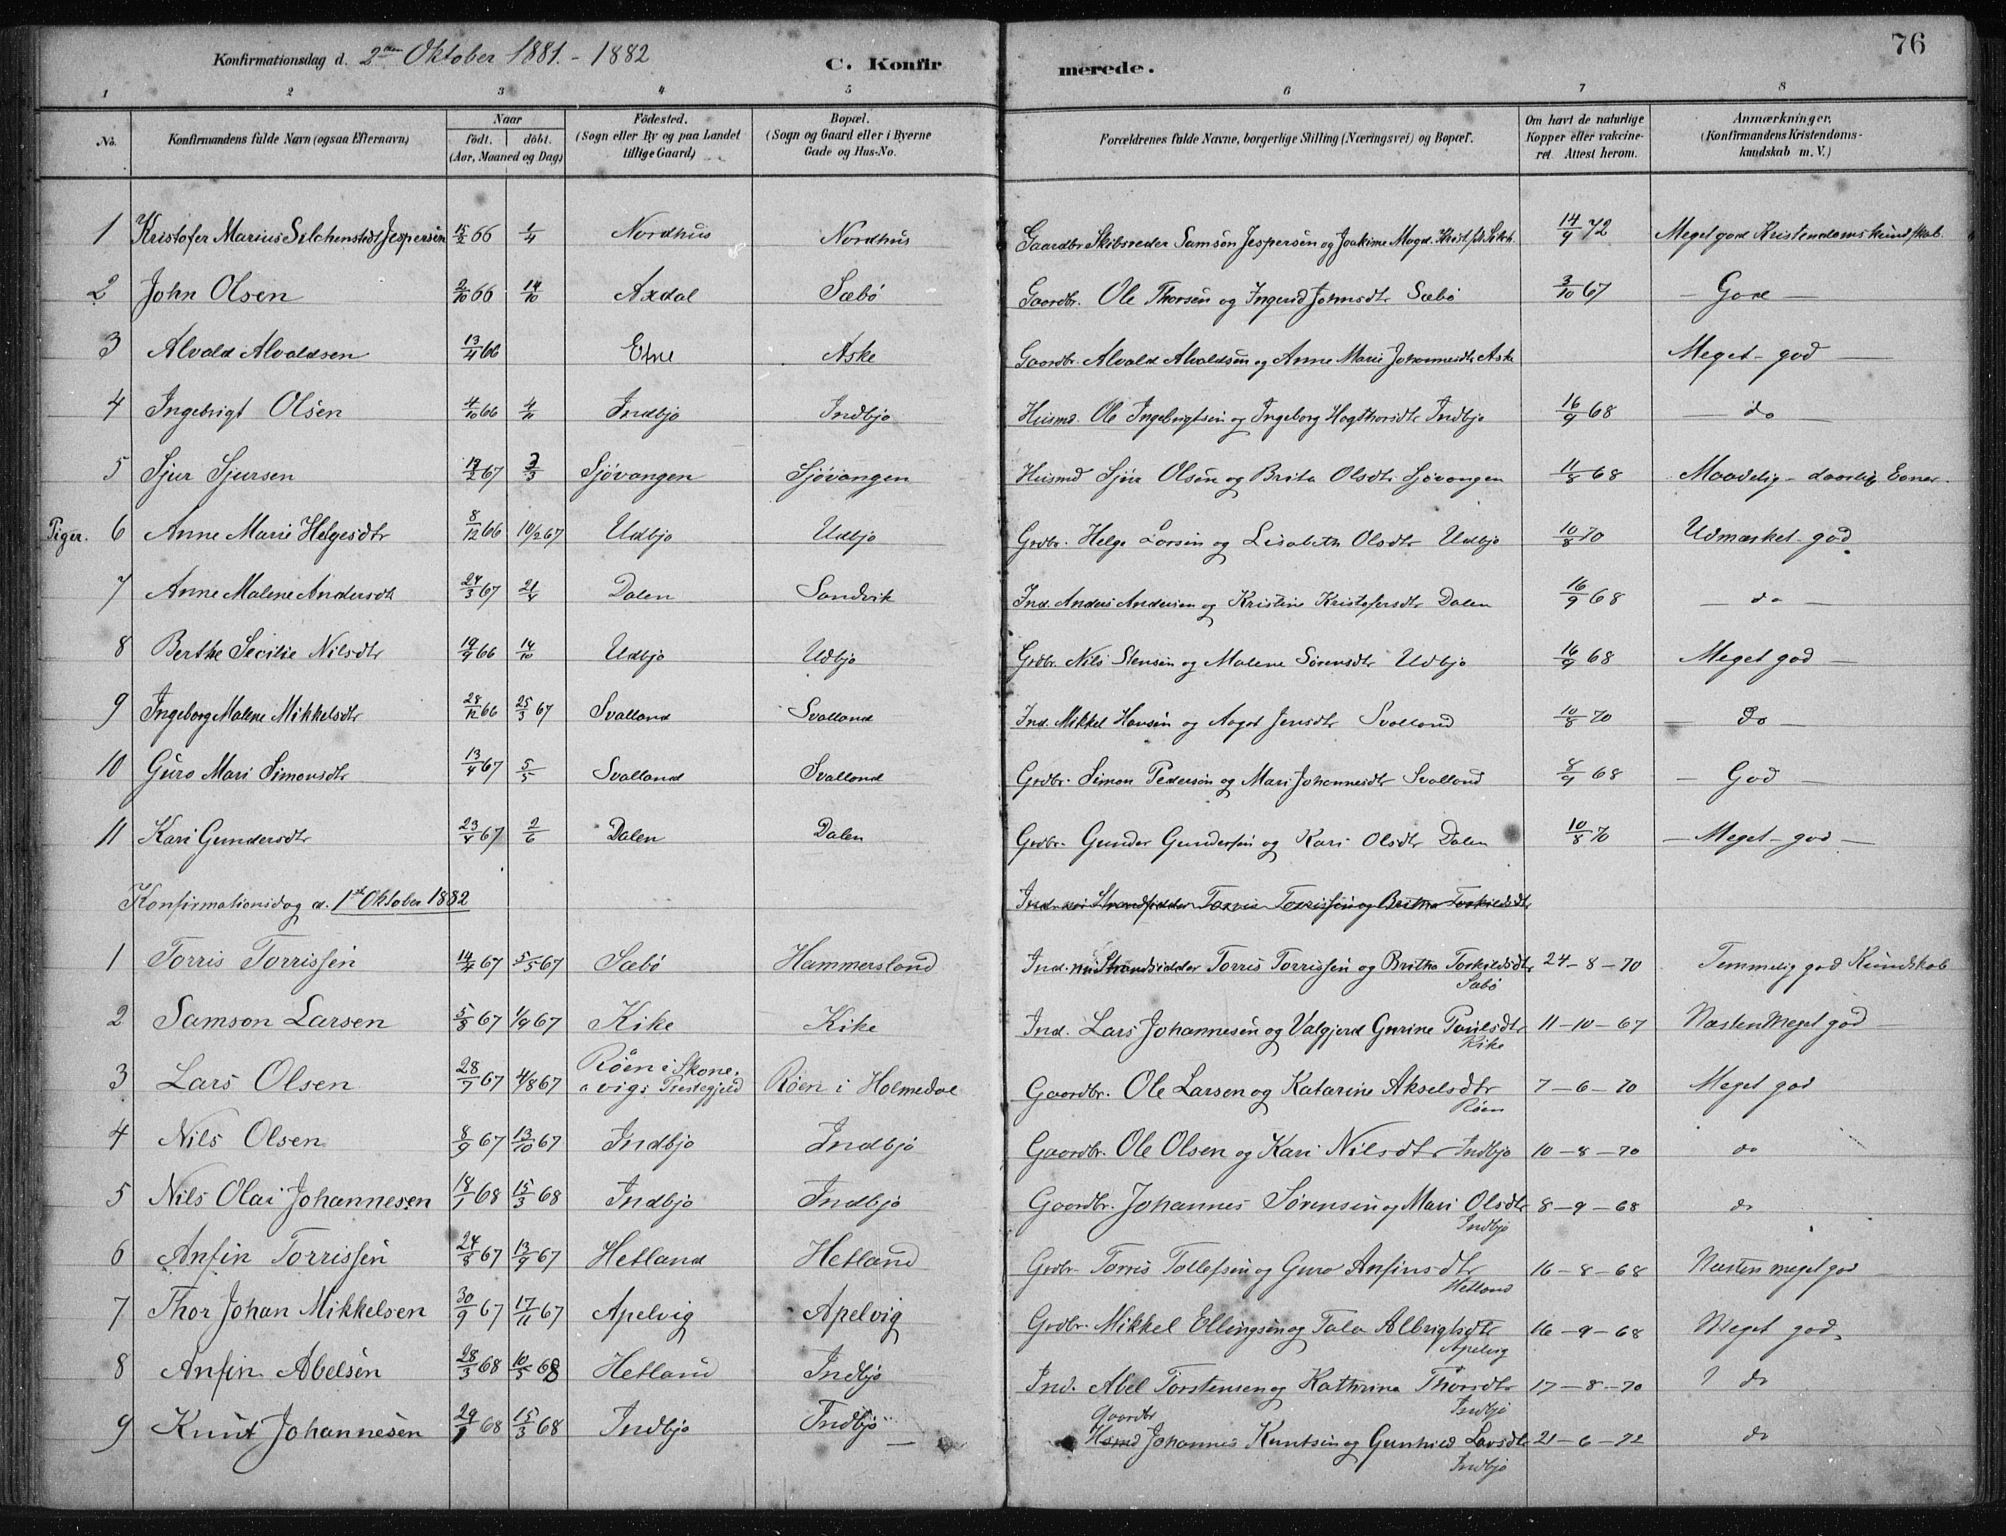 76
Konfirmationsdag d. 2den Oktober 1881. - 1882 C. Konfirmerede.
1 2 3 4 5 6 7 8
No. Konfirmandens fulde Navn (ogsaa Efternavn) Naar födt. döbt. (Aar, Maaned og Dag) Födested. (Sogn eller By og paa Landet tillige Gaard) Bopæl. (Sogn og Gaard eller i Byerne Gade og Hus-No. Forældrenes fulde Navne, borgerlige Stilling (Næringsvei) og Bopæl. Om havt de naturlige Kopper eller vakcineret. Attest herom. Anmærkninger. (Konfirmandens Kristendomskundskab m. V.)
1 Kristofer Marius Jespersen 15/2 66 1/4 Nordhus Nordhus Gaardbr. Skibsreder Samson Jespersen og Joakime Magd. Krist. 14/9 72 Meget god Kristendomskundskab.
2 John Olsen 2/10 66 14/10 Axdal Sæbö Gaardbr. Ole Thorsen og Ingerid Johnsdtr Sæbö 3/10 67 — God —
3 Alvald Alvaldsen 13/4 66 Etne Aske Gaardbr. Alvald Alvaldsen og Anne Marie Johannesdtr Aske Meget god —
4 Ingebrigt Olsen 4/10 66 4/11 Indbjo Indbjo Husmd. Ole Ingebrigtsen og Ingeborg Hogthorsdtr Indbjo 16/9 68 — do
5 Sjur Sjursen 19/2 67 3/3 Sjövangen Sjövangen Husmd Sjur Olsen og Brita Olsdtr Sjövangen 11/8 68 Maadelig - daarlig Evner.
Piger. 6 Anne Marie Helgesdtr 8/12 66 10/2 67 Udbjo Udbjo Grdbr. Helge Larsen og Lisabeth Olsdtr Udbjo 10/8 70 Udmærket god
7 Anne Malene Andersdt 24/3 67 21/4 Dalen Sandvik Ind. Anders Andersen og Kristine Kristofersdtr Dalen 16/9 68 — do —
8 Berthe Secilie Nilsdtr 19/9 66 14/10 Udbjo Udbjo Grdbr. Nils Stensen og Malene Sørensdtr Udbjo 16/9 68 Meget god —
9 Ingeborg Malene Mikkelsdtr 28/12 66 25/3 67 Svalland Svalland Ind. Mikkel Hansen og Aagot Jensdtr Svalland 10/8 70 — do —
10 Guro Mari Simonsdtr 13/4 67 5/5 Svalland Svalland Grdbr. Simon Pedersen og Mari Johannesdtr Svalland 8/9 68 — God —
11 Kari Gundersdtr 23/4 67 2/6 Dalen Dalen Grdbr. Gunder Gundersen og Kari Olsdtr Dalen 10/8 70 — Meget god —
Konfirmationsdag d. 1ste Oktober 1882 Ind. Strandsidder Torris Torrissen og Britha Torkildsdtr
1 Torris Torrissen 14/4 67 5/5 67 Sæbö Hammersland Ind. Strandsidder Torris Torrissen og Britha Torkildsdtr Sæbö 24-8-70 Temmelig god Kundskab
2 Samson Larsen 5/8 67 1/9 67 Kike Kike Ind. Lars Johannesen og Valgjerd Gurine Poulsdtr Kike 11-10-67 Næsten meget god
3 Lars Olsen 28/7 67 4/8 67 Röen i Skonevigs Prestegjeld Röen i Holmedal Gaardbr. Ole Larsen og Katarine Akselsdtr Röen 7-6-70 Meget god
4 Nils Olsen 8/9 67 13/10 67 Indbjo Indbjo Gaardbr. Ole Olsen og Kari Nilsdtr Indbjo 10-8-70 do
5 Nils Olai Johannesen 18/1 68 15/3 68 Indbjo Indbjo Gaardbr. Johannes Sørensen og Mari Olsdtr Indbjo 8-9-68 do
6 Anfin Torrissen 24/8 67 13/9 67 Hetland Hetland Grdbr. Torris Tollefsen og Guro Anfinsdtr Hetland 16-8-68 Næsten meget god
7 Thor Johan Mikkelsen 30/9 67 17/11 67 Apelvig Apelvig Grdbr. Mikkel Ellingsen og Tala Albrigtsdtr Apelvig 16-9-68 Meget god
8 Anfin Abelsen 28/3 68 10/5 68 Hetland Indbjo Ind. Abel Torstensen og Kathrina Thorsdtr Indbjo 17-8-70 do
9 Knut Johannesen 29/1 68 15/3 68 Indbjo Indbjo Gaardbr Husmd Johannes Knutsen og Gunhild Larsdtr Indbjo 21-6-72 do